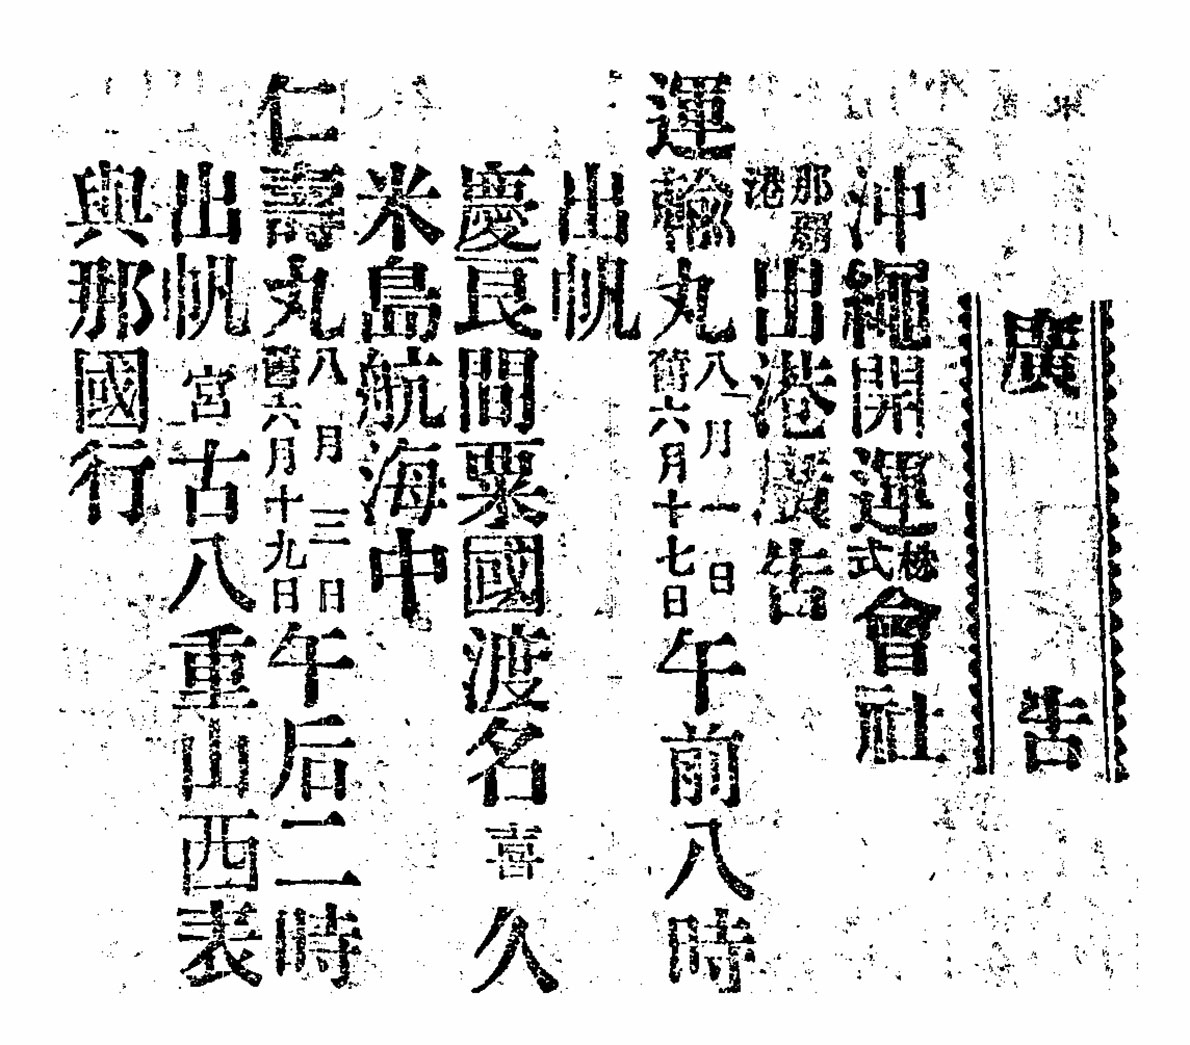 廣告
沖繩開運株式會社
那覇港出港廣告
運輸丸八月一日舊六月十七日午前八時
出帆
慶良間粟國渡名喜久
米島航海中
仁壽丸八月三日舊六月十九日午后二時
出帆宮古八重山西表
與那國行